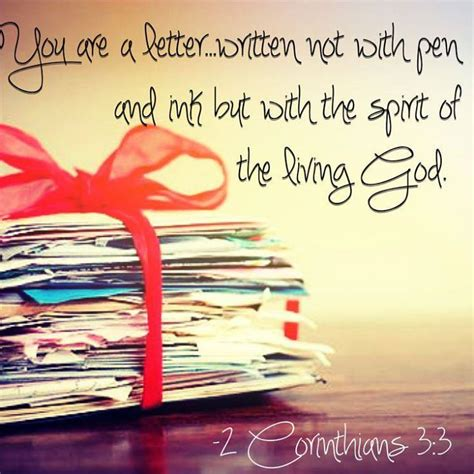 You are a letter...written not with pen
and ink but with the spirit of
the living God.
-2 Corinthians 3:3